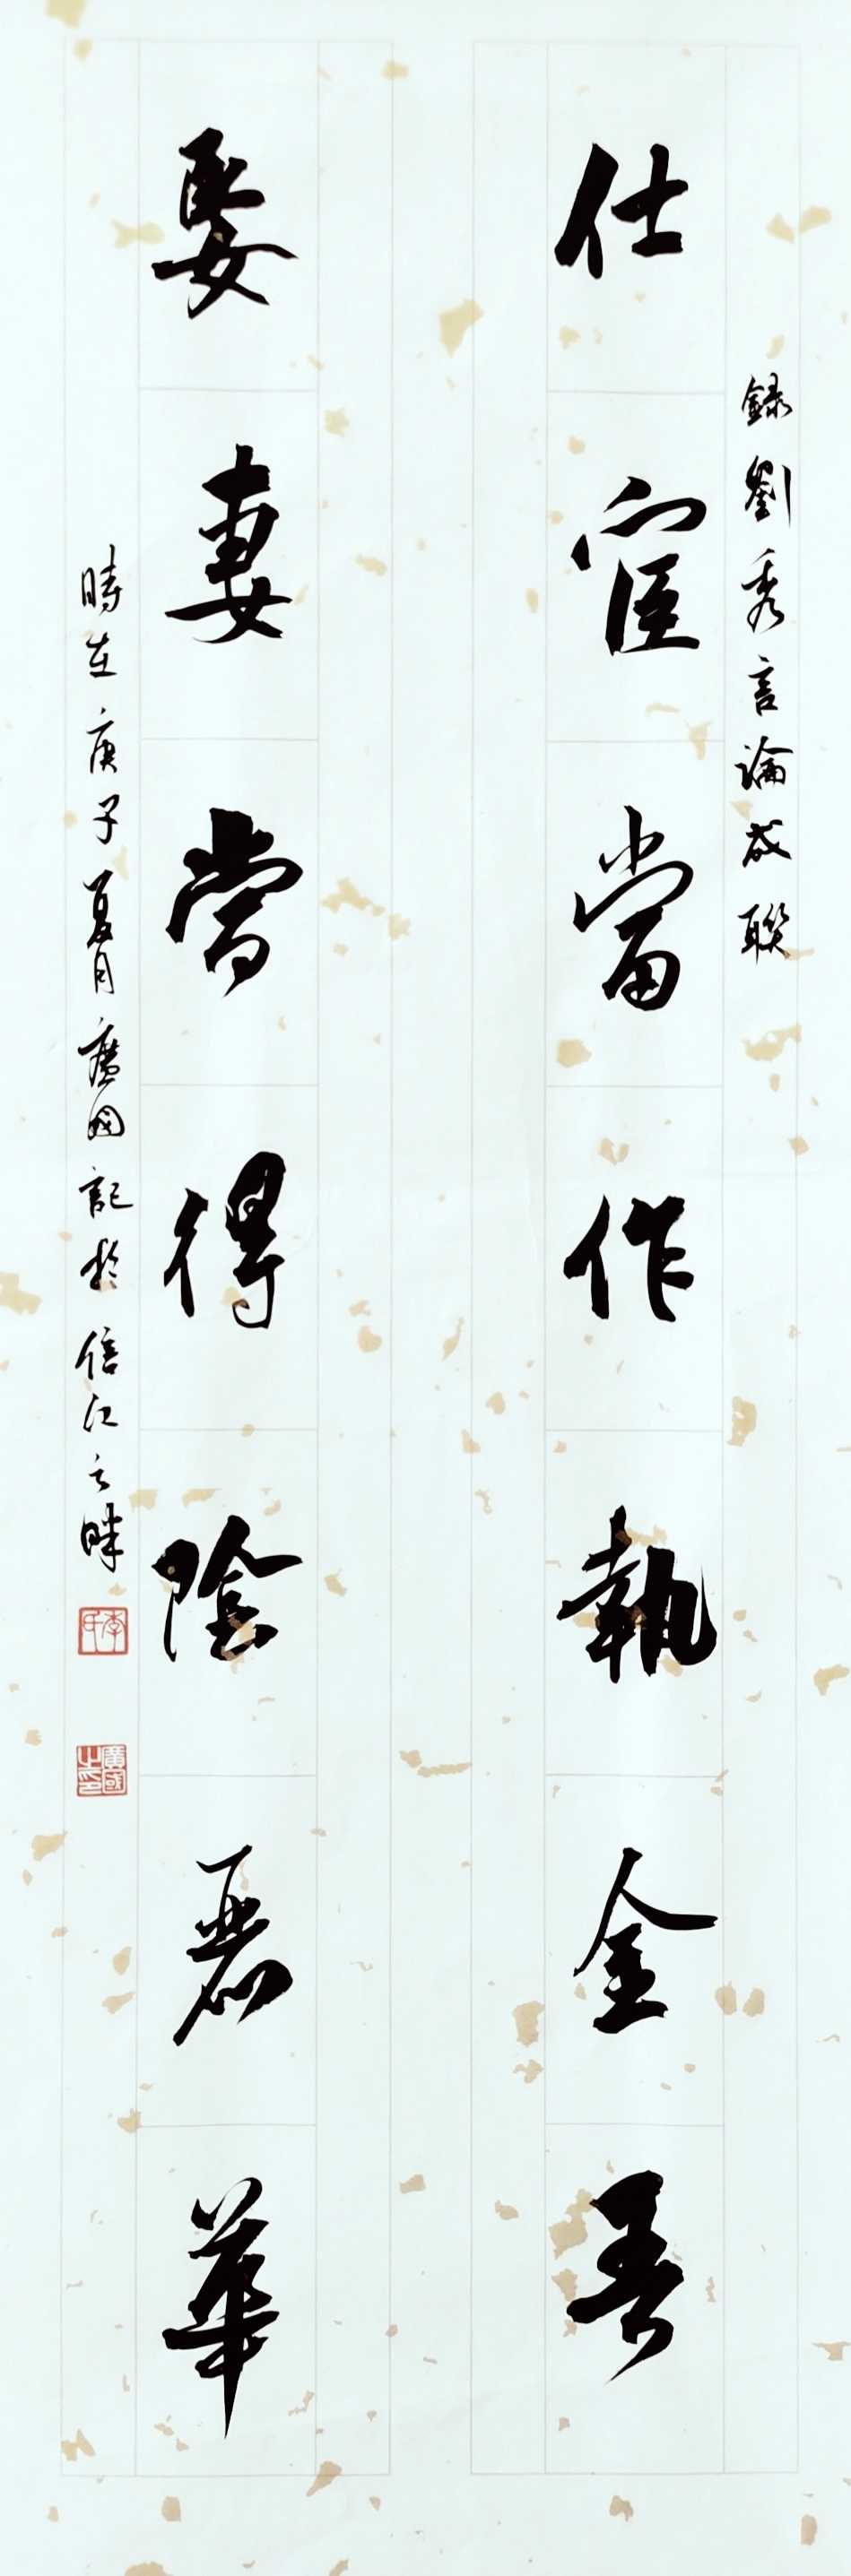 錄劉秀言論成聯
仕宦當作執金吾
娶妻當得陰麗華
時在庚子夏月廣國記於信江之畔
李氏
廣國之印